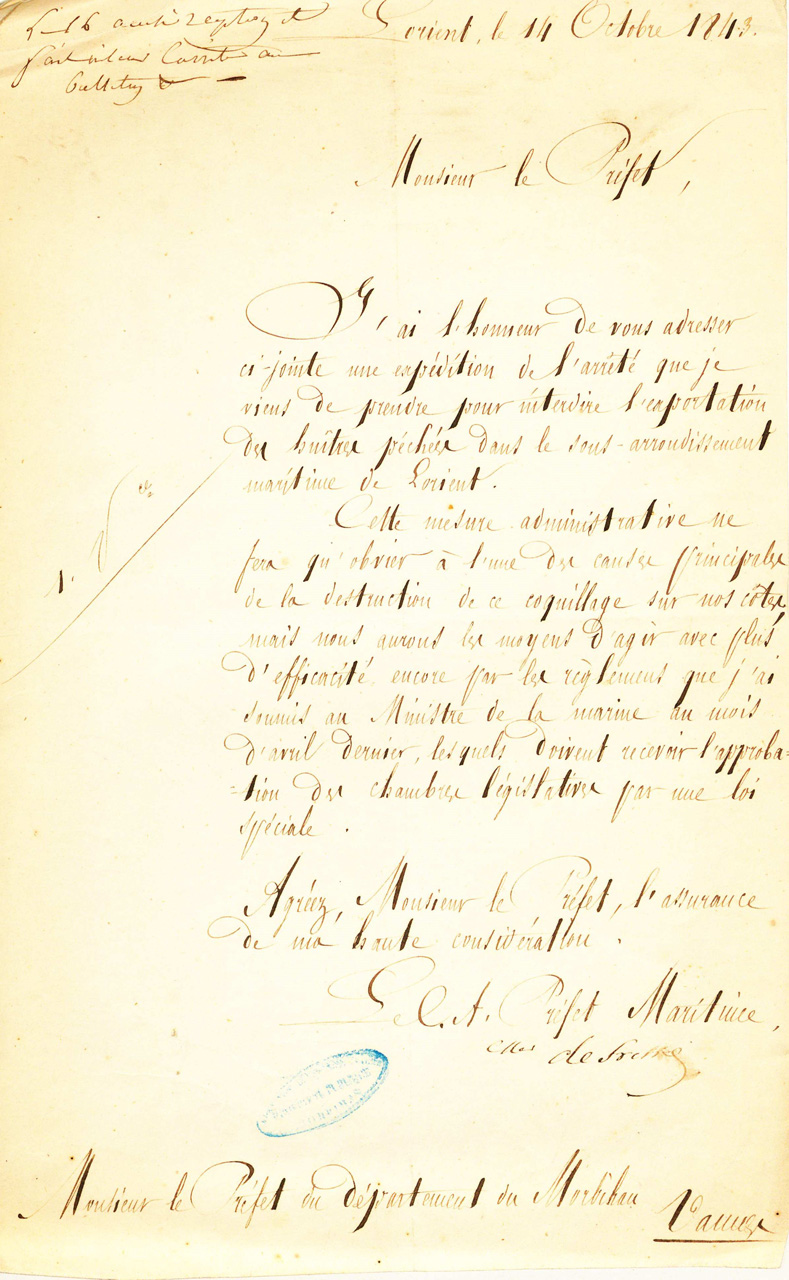 Lorient, le 14 Octobre 1843.
Monsieur le Préfet,
J'ai l'honneur de vous adresser
ci-jointe une expédition de l'arrêté que je
viens de prendre pour interdire l'exportation
des huîtres pêchées dans le sous-arrondissement
maritime de Lorient.
Cette mesure administrative ne
fera qu'obvier à l'une des causes principales
de la destruction de ce coquillage sur nos côtes,
mais nous aurons les moyens d'agir avec plus
d'efficacité encore par les règlemens que j'ai
soumis au Ministre de la marine au mois
d'avril dernier, lesquels doivent recevoir l'approba=
=tion des chambres législatives par une loi
spéciale.
Agréez, Monsieur le Préfet, l'assurance
de ma haute considération.
Le C. A. Préfet Maritime,
Monsieur le Préfet du département du Morbihan
Vannes